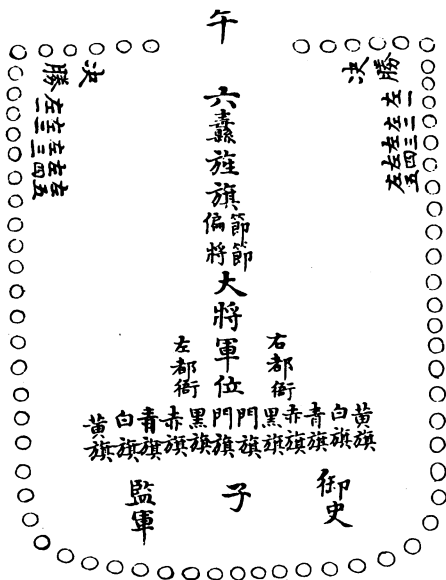 午
決勝
左一
左二
左三
左四
左五
決勝
六纛旌旗
節節
偏將
大將軍位
右都衙
左都衙
黃旗
白旗
青旗
赤旗
黑旗
門旗
門旗
黑旗
赤旗
青旗
白旗
黃旗
御史
子
監軍